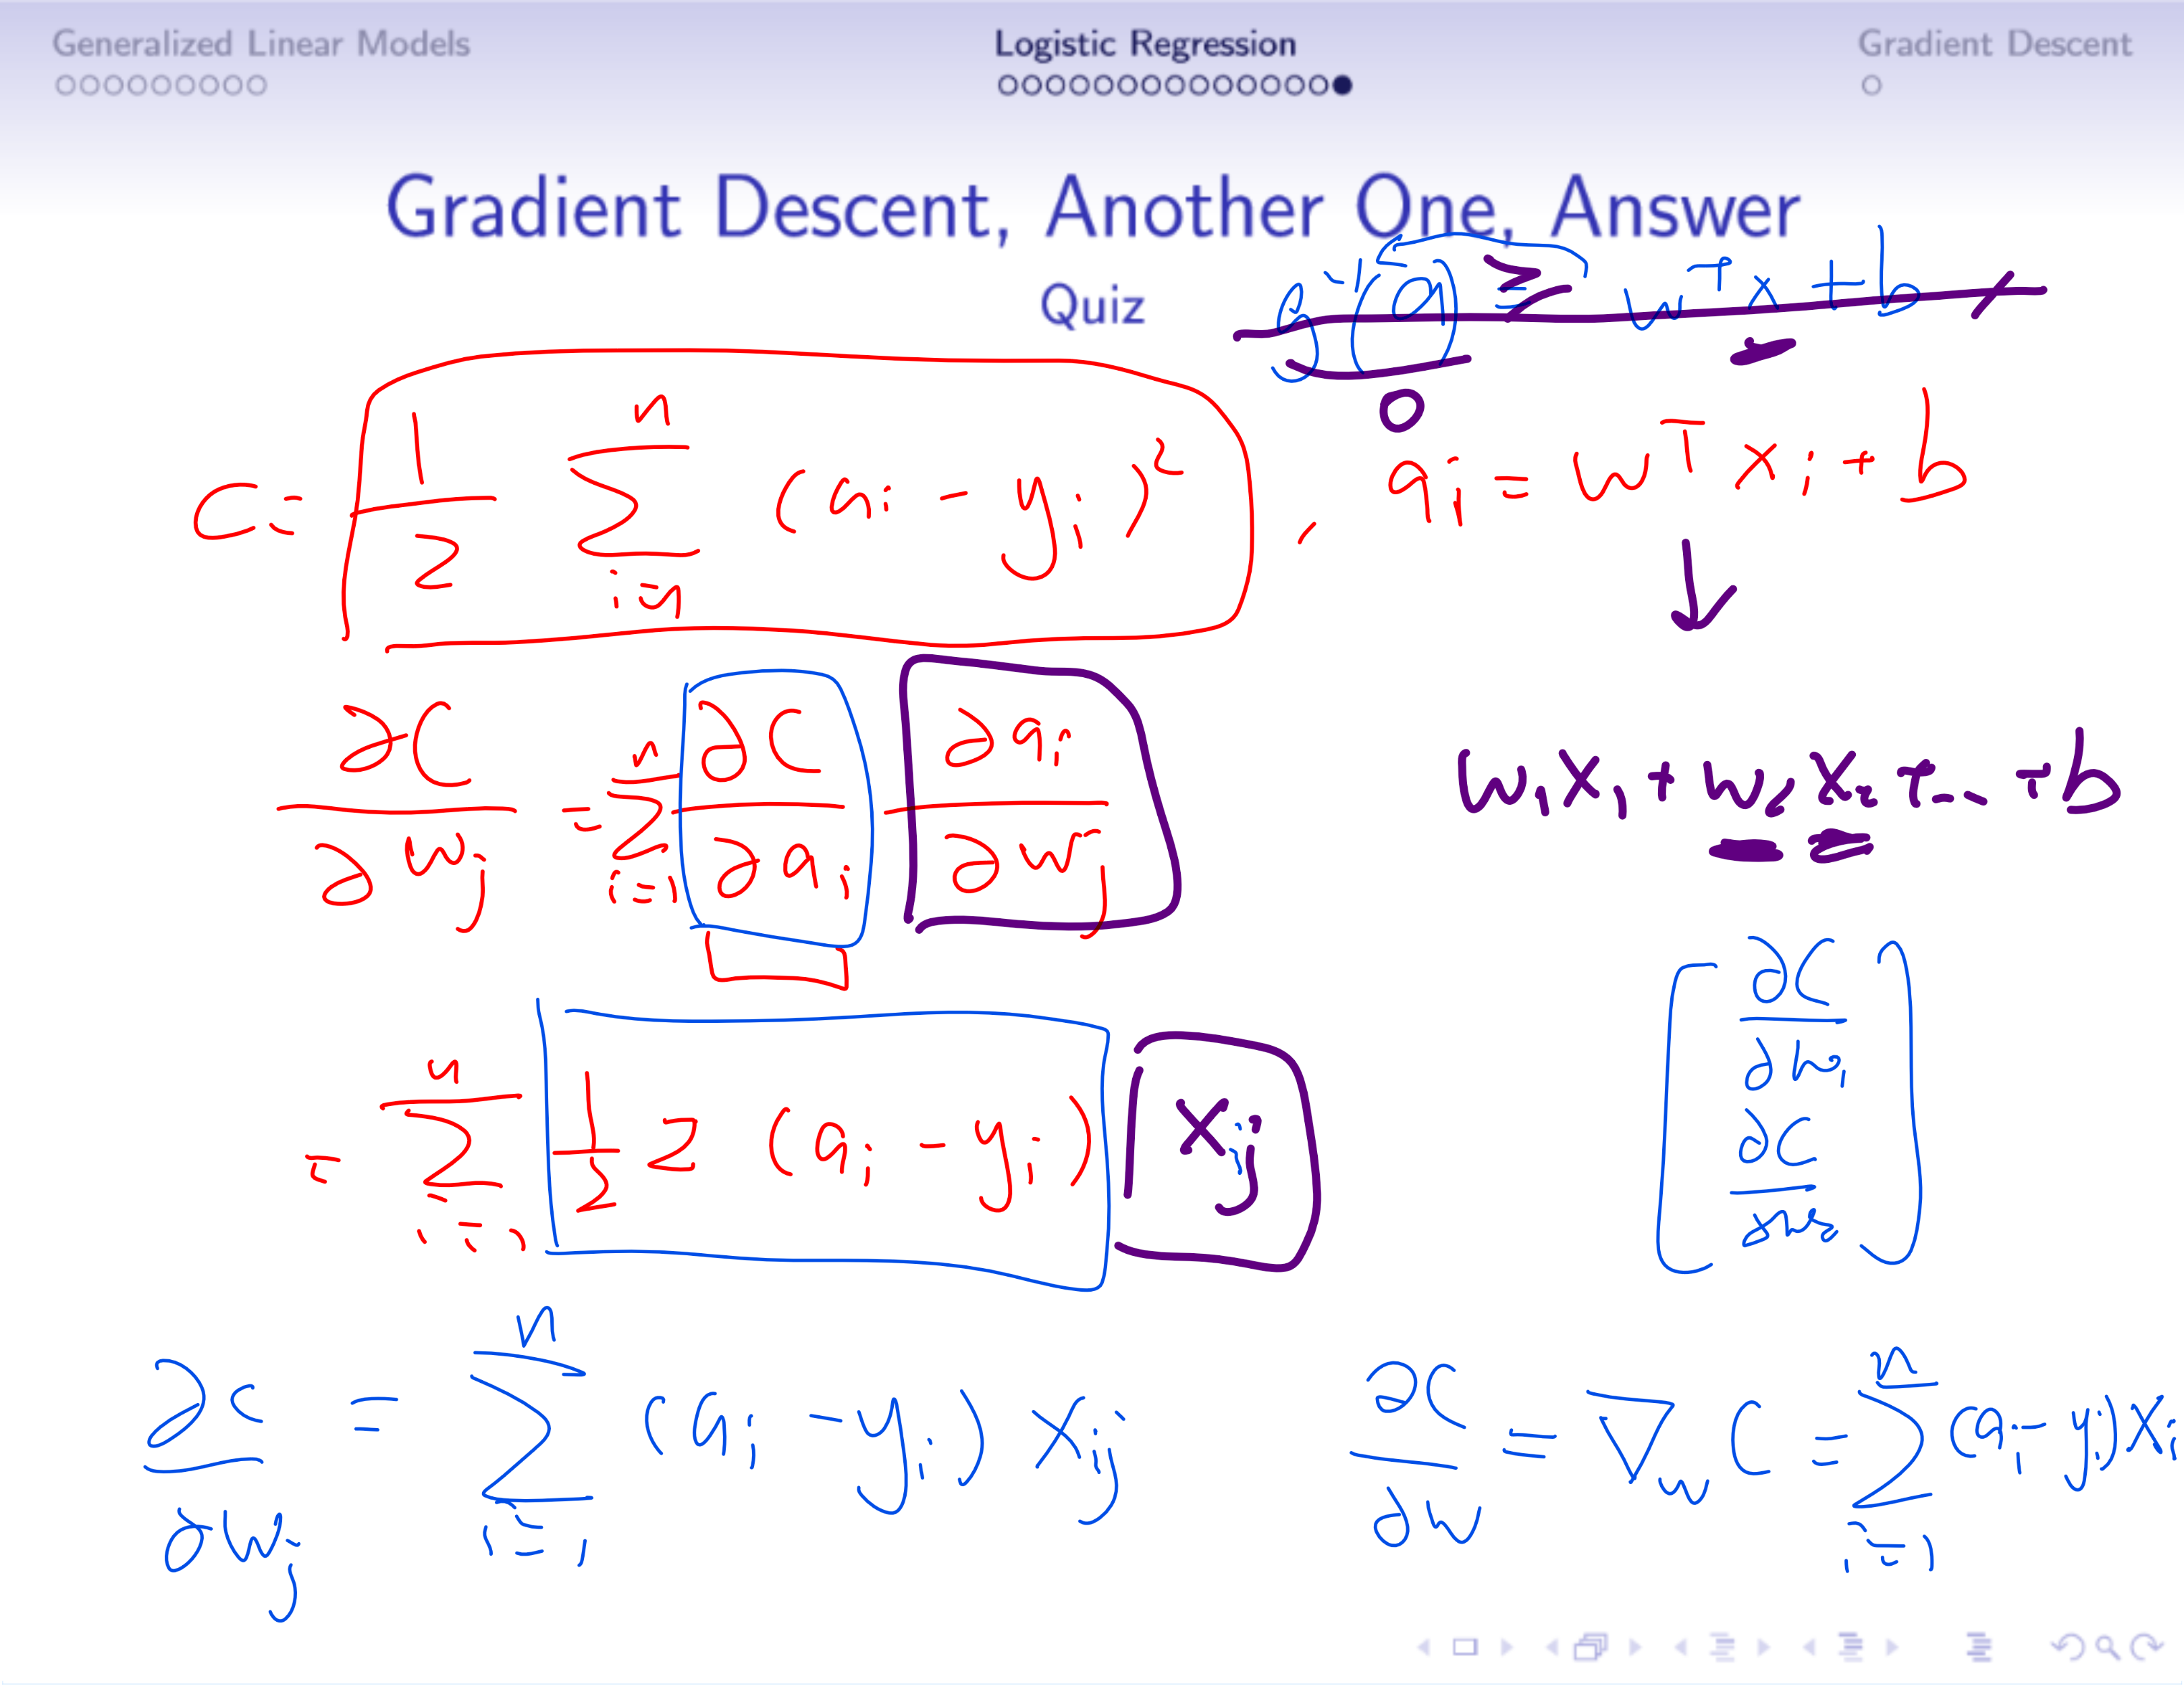 Generalized Linear Models Logistic Regression Gradient Descent
Gradient Descent, Another One, Answer
Quiz
g⁻¹(a) = wᵀx + b
0
C = 1/2 ∑_{i=1}^{n} (a_i - y_i)², a_i = wᵀx_i + b
∂C/∂w_j = ∑_{i=1}^{n} ∂C/∂a_i ∂a_i/∂w_j
w_1x_1 + w_2x_2 + ... + b
= ∑_{i=1}^{n} 1/2 2 (a_i - y_i) x_{ij}
[∂C/∂w_1
∂C/∂w_2]
∂C/∂w_j = ∑_{i=1}^{n} (a_i - y_i) x_{ij}
∂C/∂w = ∇_w C = ∑_{i=1}^{n} (a_i - y_i) x_i